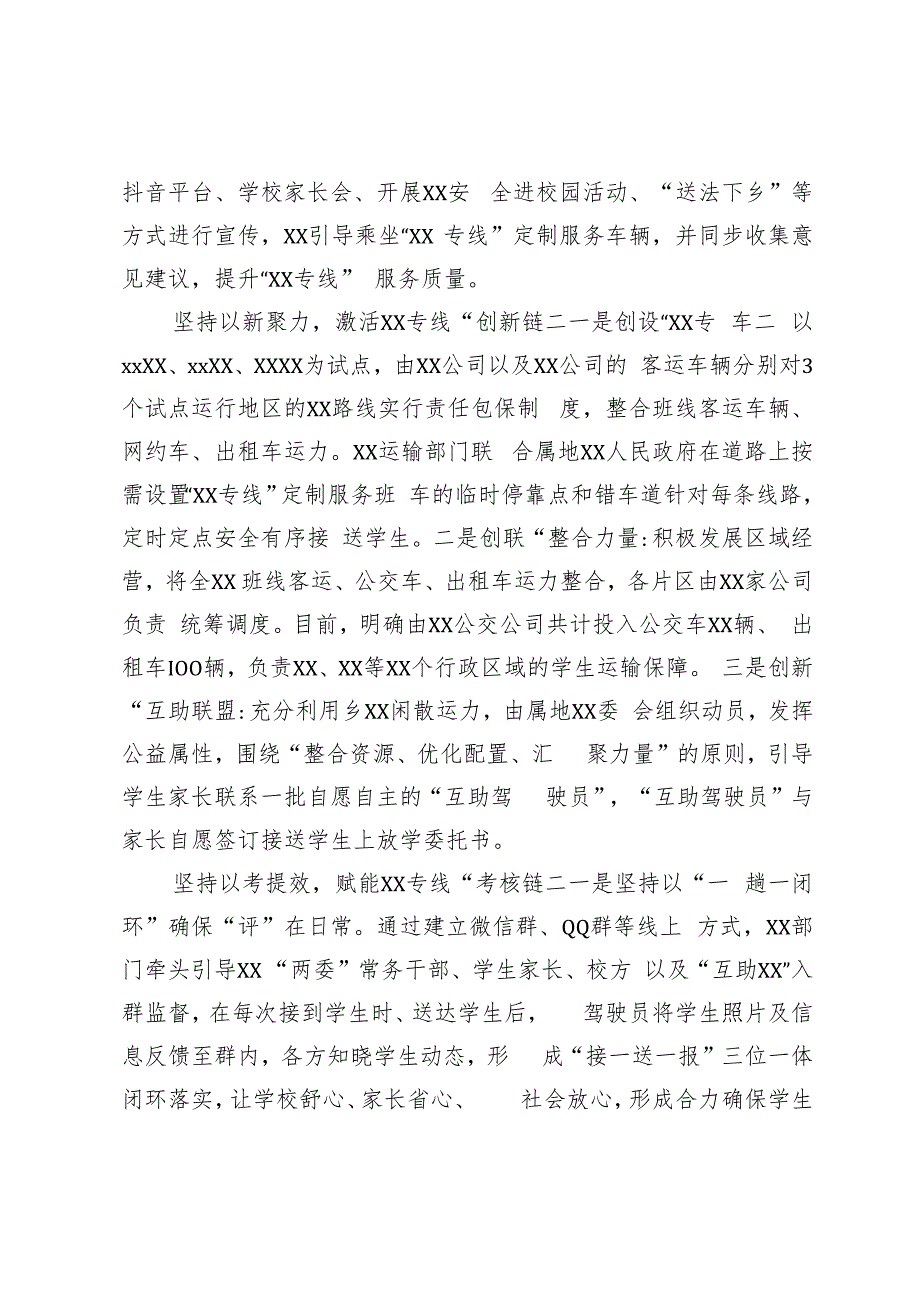 抖音平台、学校家长会、开展XX安 全进校园活动、“送法下乡”等
方式进行宣传，XX引导乘坐“XX 专线”定制服务车辆，并同步收集意
见建议，提升“XX专线” 服务质量。
坚持以新聚力，激活XX专线“创新链二一是创设“XX专 车二 以
xxXX、xxXX、XXXX为试点，由XX公司以及XX公司的 客运车辆分别对3
个试点运行地区的XX路线实行责任包保制 度，整合班线客运车辆、
网约车、出租车运力。XX运输部门联 合属地XX人民政府在道路上按
需设置“XX专线”定制服务班 车的临时停靠点和错车道针对每条线路，
定时定点安全有序接 送学生。二是创联“整合力量：积极发展区域经
营，将全XX班线客运、公交车、出租车运力整合，各片区由XX家公司
负责 统筹调度。目前，明确由XX公交公司共计投入公交车XX辆、 出
租车IOO辆，负责XX、XX等XX个行政区域的学生运输保障。 三是创新
“互助联盟：充分利用乡XX闲散运力，由属地XX委 会组织动员，发挥
公益属性，围绕“整合资源、优化配置、汇 聚力量”的原则，引导
学生家长联系一批自愿自主的“互助驾 驶员”，“互助驾驶员”与
家长自愿签订接送学生上放学委托书。
坚持以考提效，赋能XX专线“考核链二一是坚持以“一 趟一闭
环”确保“评”在日常。通过建立微信群、QQ群等线上 方式，XX部
门牵头引导XX“两委”常务干部、学生家长、校方 以及“互助XX”入
群监督，在每次接到学生时、送达学生后， 驾驶员将学生照片及信
息反馈至群内，各方知晓学生动态，形 成“接一送一报”三位一体
闭环落实，让学校舒心、家长省心、 社会放心，形成合力确保学生